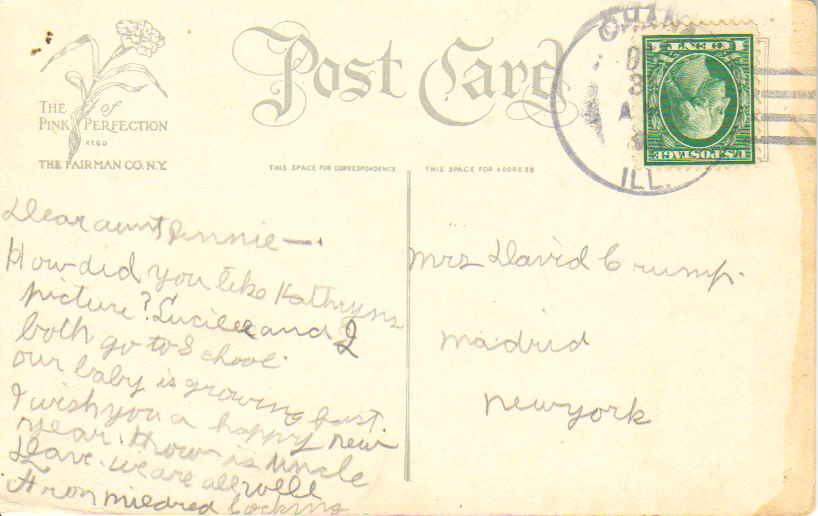 THE of
PINK PERFECTION
REGD
THE FAIRMAN CO. N.Y.
Post Card
THIS SPACE FOR CORRESPONDENCE
THIS SPACE FOR ADDRESS
CHANA
ILL.
ONE CENT
U.S. POSTAGE
Dear aunt Pennie—
How did you like Kathryns
picture? Lucile and I
both go to School.
our baby is growing fast.
I wish you a happy new
year. How is Uncle
Dave. we are all well
From mildred
Mrs David Crump.
madrid
newyork